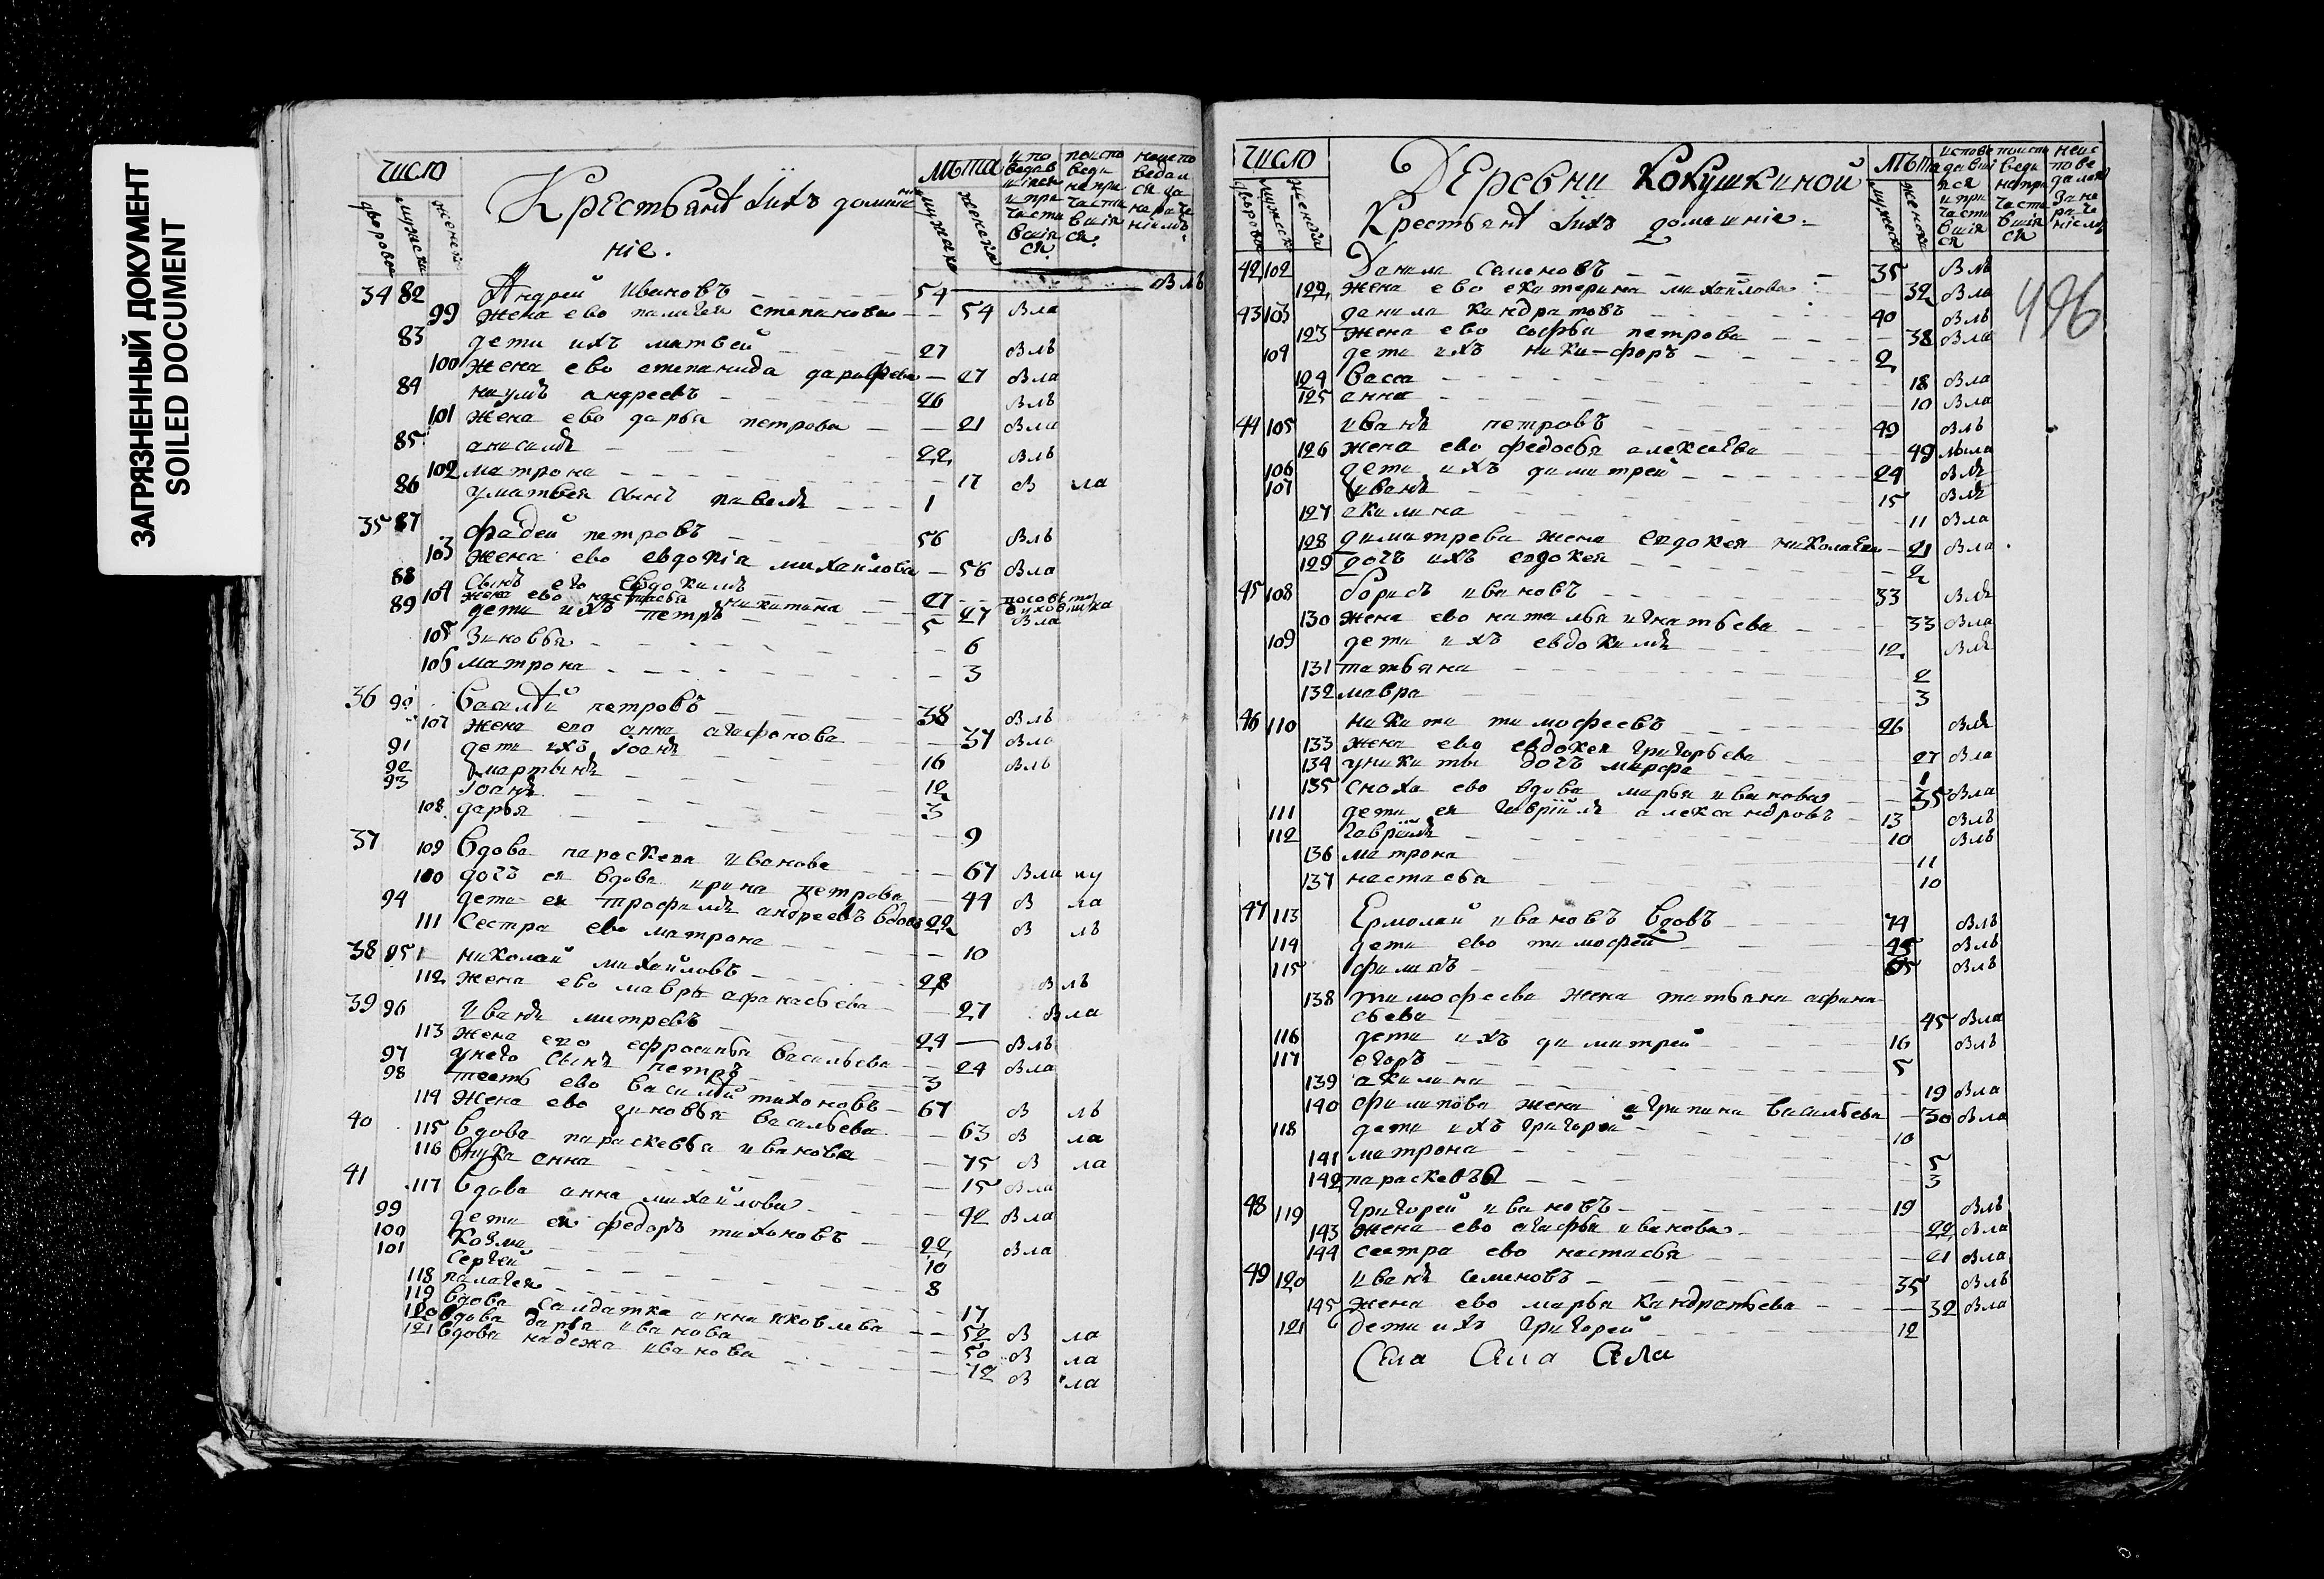 ЗАГРЯЗНЕННЫЙ ДОКУМЕНТ
SOILED DOCUMENT
число
Крестьянѣ ихъ домашніе.
лѣта
дворовъ мужска женска мужска женска
34 82 Андрей Ивановъ 54 Влъ
99 жена ево палагея степанова 54 Вла
83 дети ихъ матвей 27 Влъ
100 жена ево степанида дарофеева 27 Вла
84 наумъ андреевъ 26 Влъ
101 жена ево дарья петрова 21 Вла
85 анисимъ 22 Влъ
102 матрона 17 В ла
86 у матвея сынъ павелъ 1
35 87 фадей петровъ 56 Влъ
103 жена ево евдокіа михайлова 56 Вла
88 сынъ его евдокимъ 27
104 жена ево настасья никитина 27 Вла
89 дети ихъ петръ 5
105 зиновья 6
106 матрона 3
36 90 василій петровъ 38 Влъ
107 жена ево анна агафонова 37 Вла
91 дети ихъ іоанъ 16 Влъ
92 мартынъ 12
93 іоанъ 3
108 дарья 9
37 109 вдова параскева иванова 67 Вла
100 дочъ ея вдова ирина петрова 44 В ла
94 дети ея трофимъ андреевъ вдовъ 22 В лъ
111 сестра ево матрона 10
38 95 николай михайловъ 28 В лъ
112 жена ево мавра афанасьева 27 Вла
39 96 иванъ митревъ 24 Влъ
113 жена ево ефросинья васильева 24 Вла
97 у него сынъ петръ 3
98 тесть ево василій тихоновъ 67 В лъ
114 жена ево зиновья васильева 63 В ла
40 115 вдова параскевья иванова 75 В ла
116 внука анна 15 Вла
41 117 вдова анна михайлова 42 Вла
99 дети ея федоръ тихоновъ 22 Вла
100 козма 10
101 сергей 8
118 палагея 17
119 вдова салдатка анна яковлева 52 В ла
120 вдова дарья иванова 50 В ла
121 вдова надежа иванова 72 В ла
число
Деревни Кокушкиной
Крестьянѣ ихъ домашніе
лѣта
дворовъ мужска женска мужска женска
496
42 102 Данила Семеновъ 35 Влъ
122 жена ево екатерина михайлова 32 Вла
43 103 данила кандратовъ 40 Влъ
123 жена ево софья петрова 38 Вла
104 дети ихъ никифоръ 2
124 васса 18 Вла
125 анна 10 Вла
44 105 иванъ петровъ 49 Влъ
126 жена ево федосья алексѣева 49 Вла
106 дети ихъ димитрей 24 Влъ
107 иванъ 15 Влъ
127 акилина 11 Вла
128 димитрева жена евдокея николаева 21 Вла
129 дочъ ихъ евдокея 2
45 108 борисъ ивановъ 33 Влъ
130 жена ево наталья игнатьева 33 Вла
109 дети ихъ евдокимъ 12 Влъ
131 татьяна 2
132 мавра 3
46 110 никита тимофеевъ 26 Влъ
133 жена ево евдокея григорьева 27 Вла
134 у никиты дочъ марфа 1
135 сноха ево вдова марья иванова 35 Вла
111 дети ея гавріилъ александровъ 13 Влъ
112 гаврилъ 10 Влъ
136 матрона 11
137 настасья 10
47 113 Ермолай ивановъ вдовъ 74 Влъ
114 дети ево тимофей 45 Влъ
115 филипъ Влъ
138 тимофеева жена татьяна афанасьева 45 Вла
116 дети ихъ димитрей 16 Влъ
117 егоръ 5
139 акилина 19 Вла
140 филипова жена агрипина васильева 30 Вла
118 дети ихъ григорей 10
141 матрона 5
142 параскевья 3
48 119 Григорей ивановъ 19 Влъ
143 жена ево агафья иванова 22 Вла
144 сестра ево настасья 21 Вла
49 120 иванъ семеновъ 35 Влъ
145 жена ево марья кандратьева 32 Вла
121 дети ихъ григорей 12